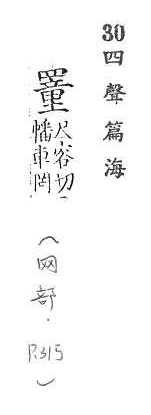 30四聲篇海
罿尺容切
幡車罔
(网部．P.315)